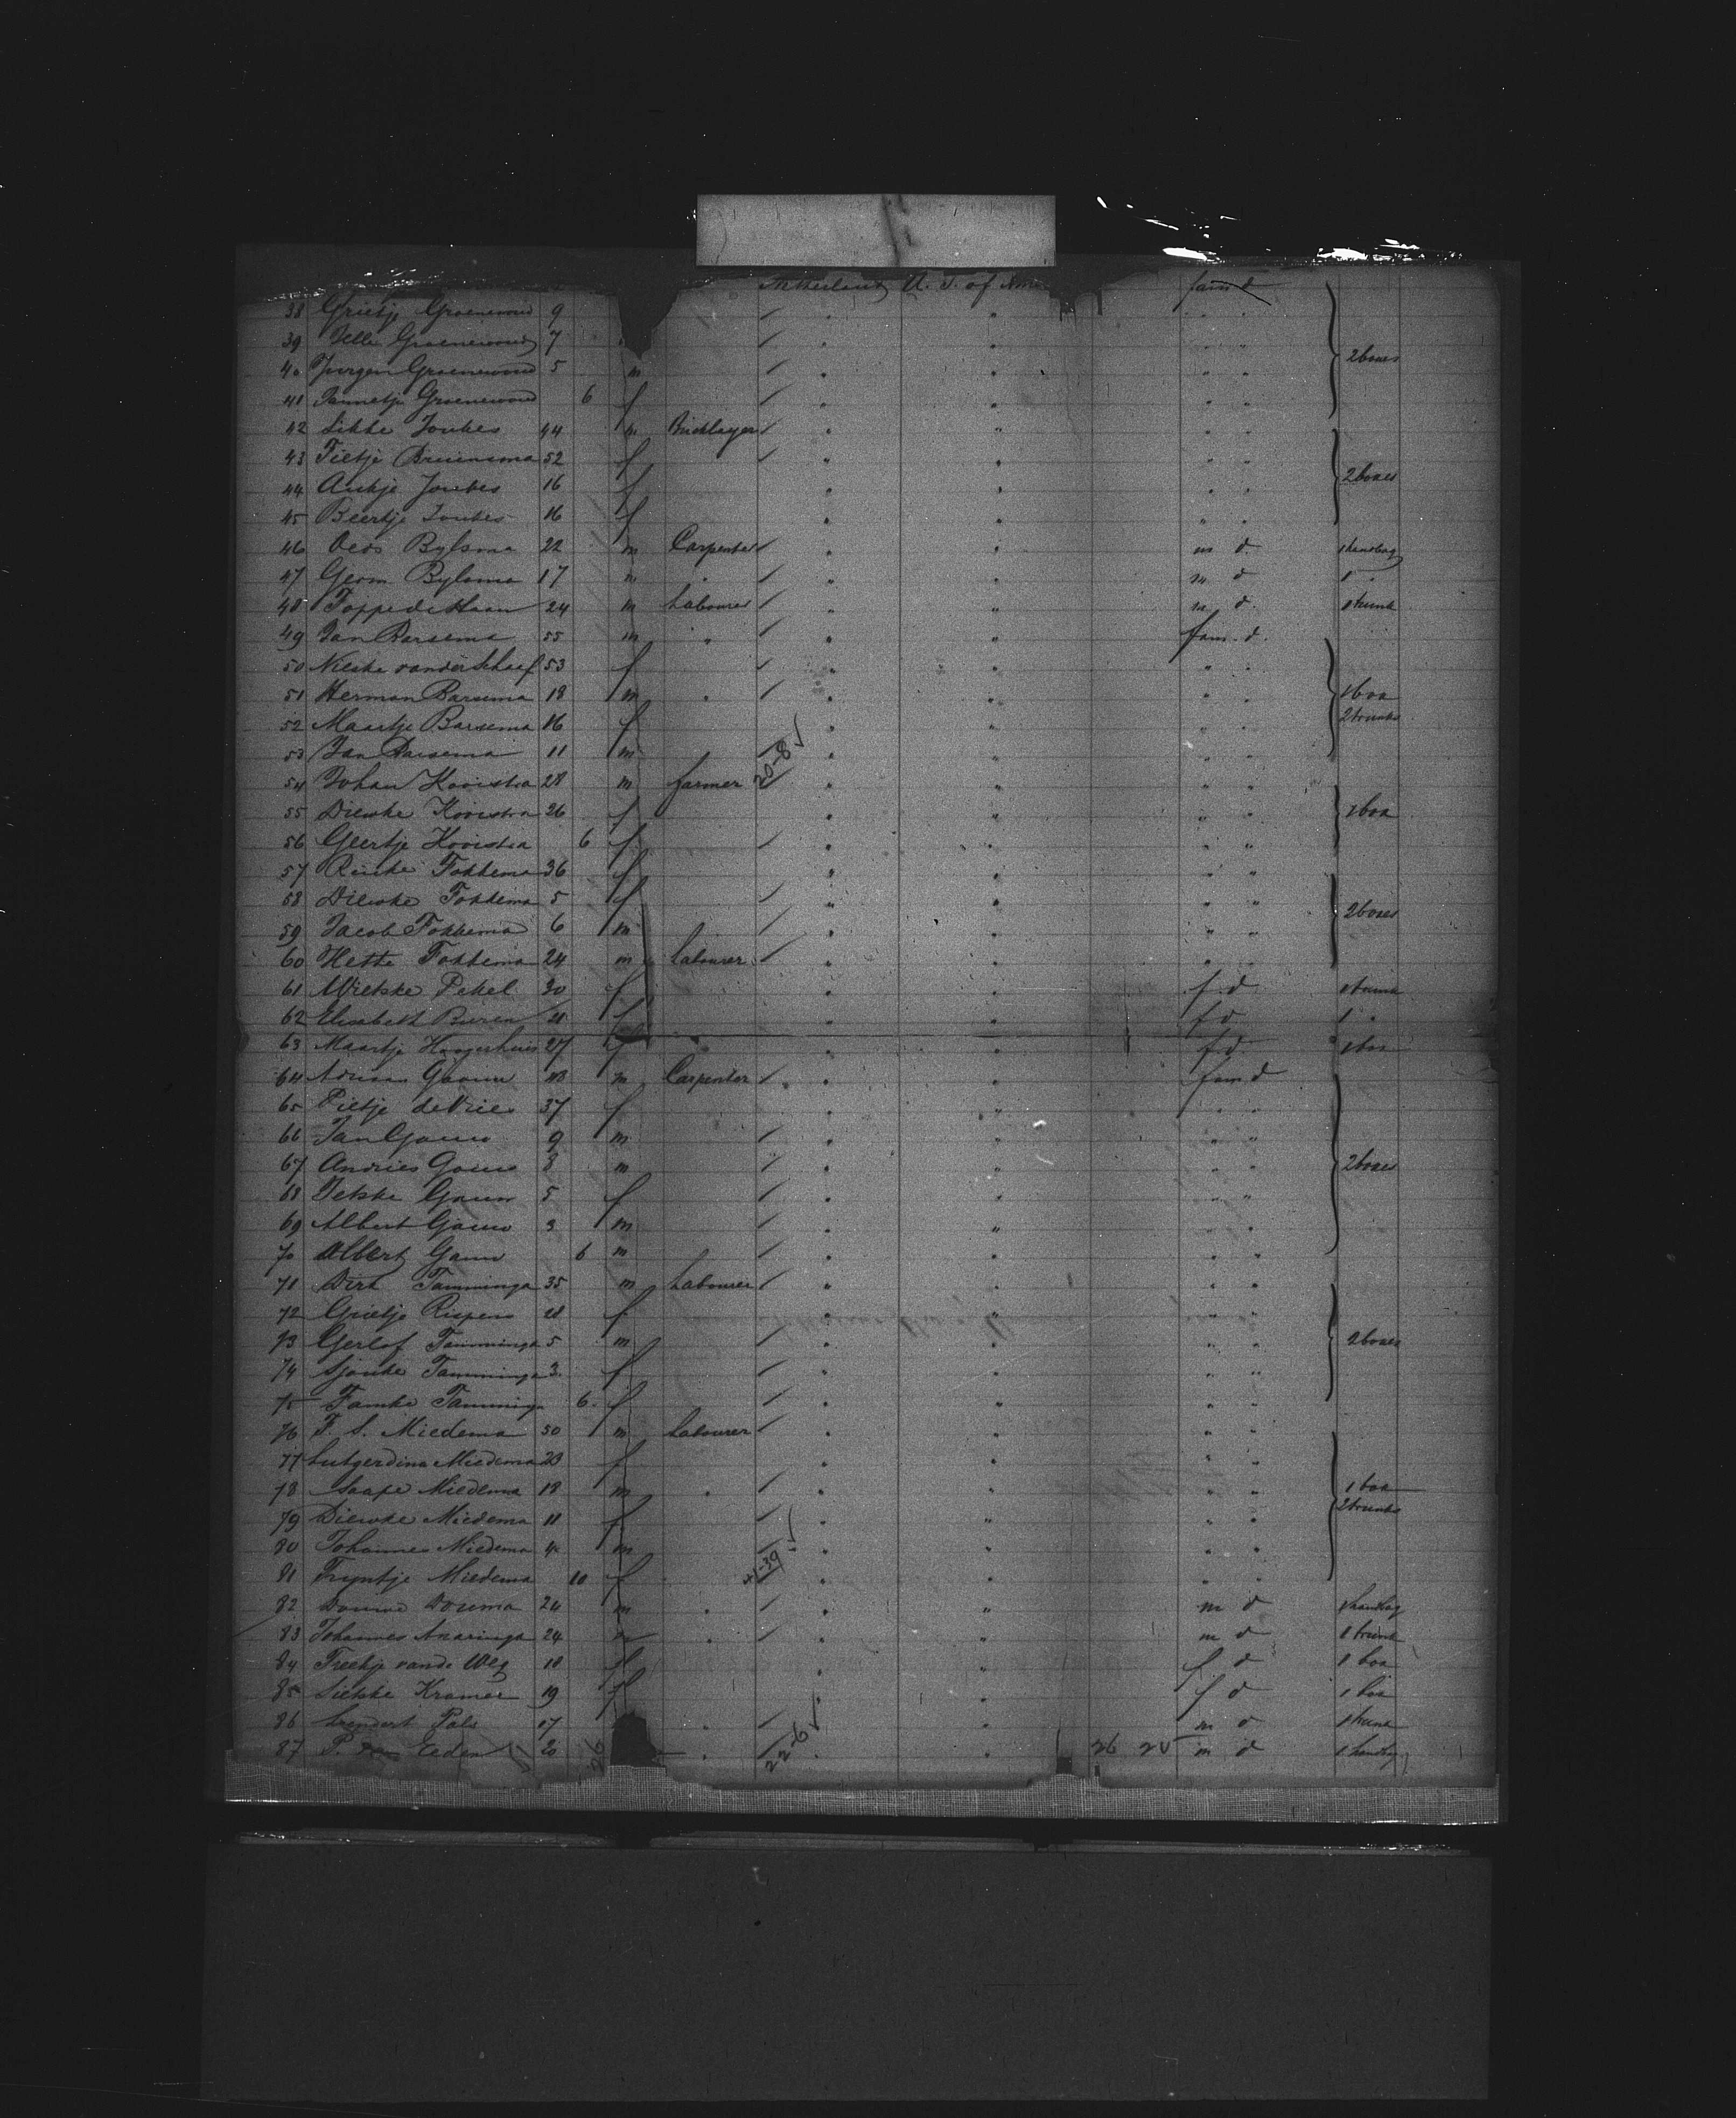 Netherland U. S. of fam d
38 Grietje Groenewoud 9 " " "
39 Jelle Groenewoud 7 " " " 2 boxes
40 Jurgen Groenewoud 5 m " " "
41 Jannetje Groenewoud 6 f " " "
42 Sikke Joukes 44 m Bricklayer " " "
43 Fietje Bruinsma 52 f " " "
44 Ankje Joukes 16 f " " " 2 boxes
45 Beertje Joukes 16 f " " "
46 Oeds Bylsma 22 m Carpenter " " m d 1 handbag
47 Germ Bylsma 17 m " " " m d 1 "
48 Foppe de Haan 24 m Labourer " " m d 1 trunk
49 Jan Barsema 55 m " " " fam d
50 Nieske van der Schaaf 53 f " " "
51 Herman Barsema 18 m " " " " 1 box
52 Maartje Barsema 16 f " " " 2 trunks
53 Jan Barsema 11 m " " "
20-8 ✓
54 Johan Kooistra 28 m farmer " " "
55 Dieuwke Kooistra 26 f " " " 1 box
56 Geertje Kooistra 6 f " " "
57 Rinske Fokkema 36 f " " "
58 Dieuwke Fokkema 5 f " " " 2 boxes
59 Jacob Fokkema 6 m " " "
60 Hette Fokkema 24 m Labourer " " "
61 Wietske Pekel 30 f " " f d 1 trunk
62 Elisabeth Buren 21 f " " f d 1 "
63 Maartje Hoogerhuis 27 f " " f d 1 box
64 Carpenter m " " fam d
65 Pietje de Vries 37 f " " "
66 Jan 9 m " " "
67 Andries 8 m " " " 2 boxes
68 Jetske 5 f " " "
69 Albert 3 m " " "
70 Albert 6 m " " "
71 Dirk Tamminga 35 m Labourer " " "
72 Grietje Rispens 28 f " " "
73 Gerlof Tamminga 5 m " " " 2 boxes
74 Sjouke Tamminga 3 f " " "
75 Famke Tamminga 6 f " " "
76 F. S. Miedema 50 m Labourer " " "
77 Lutgerdina Miedema 23 f " " "
78 Saape Miedema 18 m " " " " 1 box
79 Dieuwke Miedema 11 f " " " 2 trunks
80 Johannes Miedema 4 m " " "
81 Tryntje Miedema 10 f " " "
41-39 ✓
82 Douwe Douma 24 m " " " m d 1 handbag
83 Johannes 24 m " " " m d 1 trunk
84 Treekje vande Weg 18 f " " f d 1 box
85 Sietske Kramer 19 f " " f d 1 box
86 Leendert Pals 17 " " " m d 1 trunk
87 P. van Eeden 20 " " " 26 25 m d 1 handbag
22-6 ✓
26